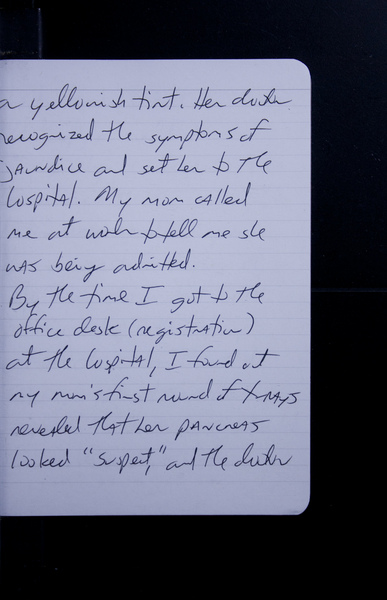 a yellowish tint. Her doctor
recognized the symptoms of
jaundice and sent her to the
hospital. My mom called
me at work to tell me she
was being admitted.
By the time I got to the
office desk (registration)
at the hospital, I found out
my mom's first round of X-rays
revealed that her pancreas
looked "suspect," and the doctor